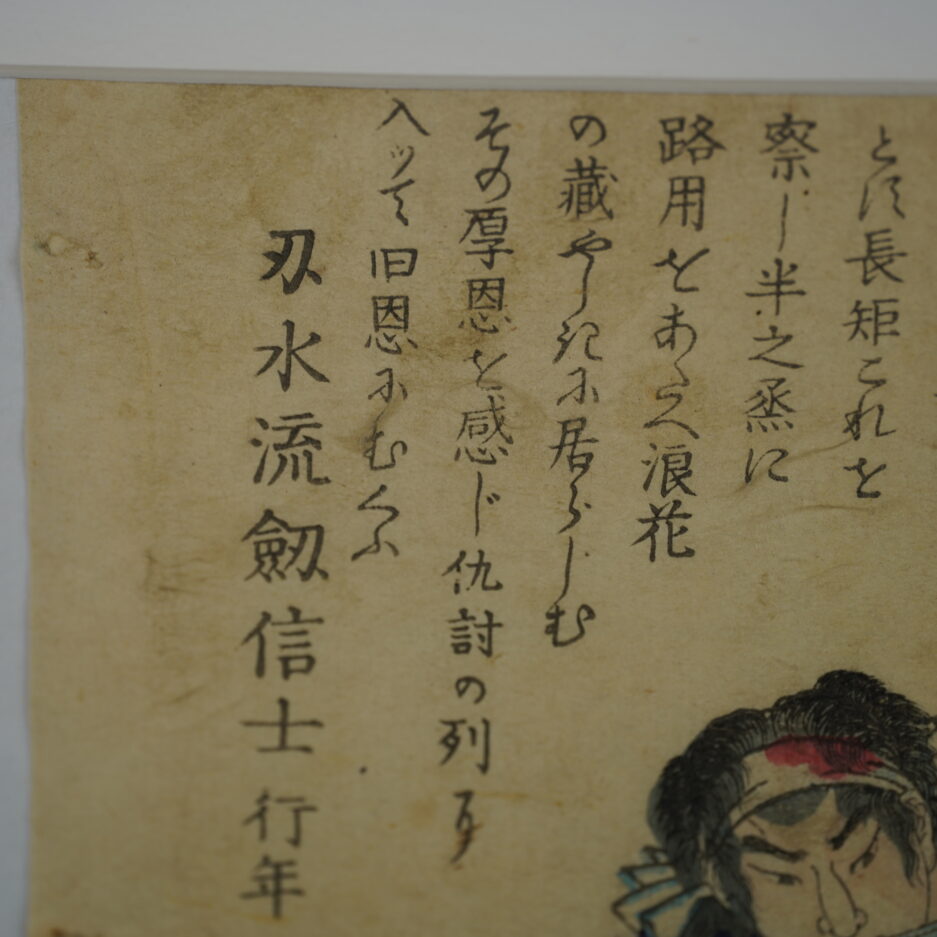 とす長矩これを
察し半之烝に
路用をあたへ浪花
の藏やしきに居らしむ
その厚恩を感じ仇討の列
入ッて旧恩にむくふ
刄水流劔信士 行年